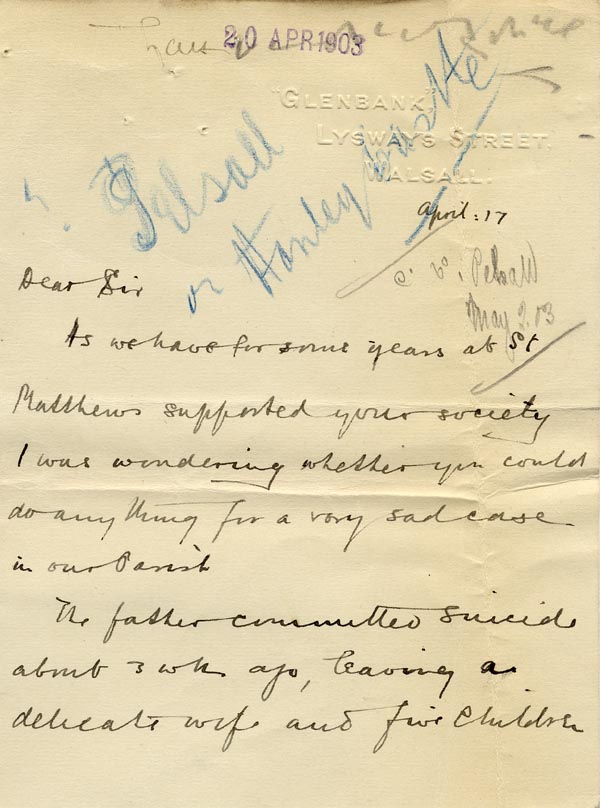 20 APR 1903
"GLENBANK,"
LYSWAYS STREET,
WALSALL.
Pelsall
or Hanley
April: 17
Pelsall
May 2.03
Dear Sir
As we have for some years at St
Matthews supported your society
I was wondering whether you could
do anything for a very sad case
in our Parish
The father committed suicide
about 3 wks ago, leaving a
delicate wife and five children